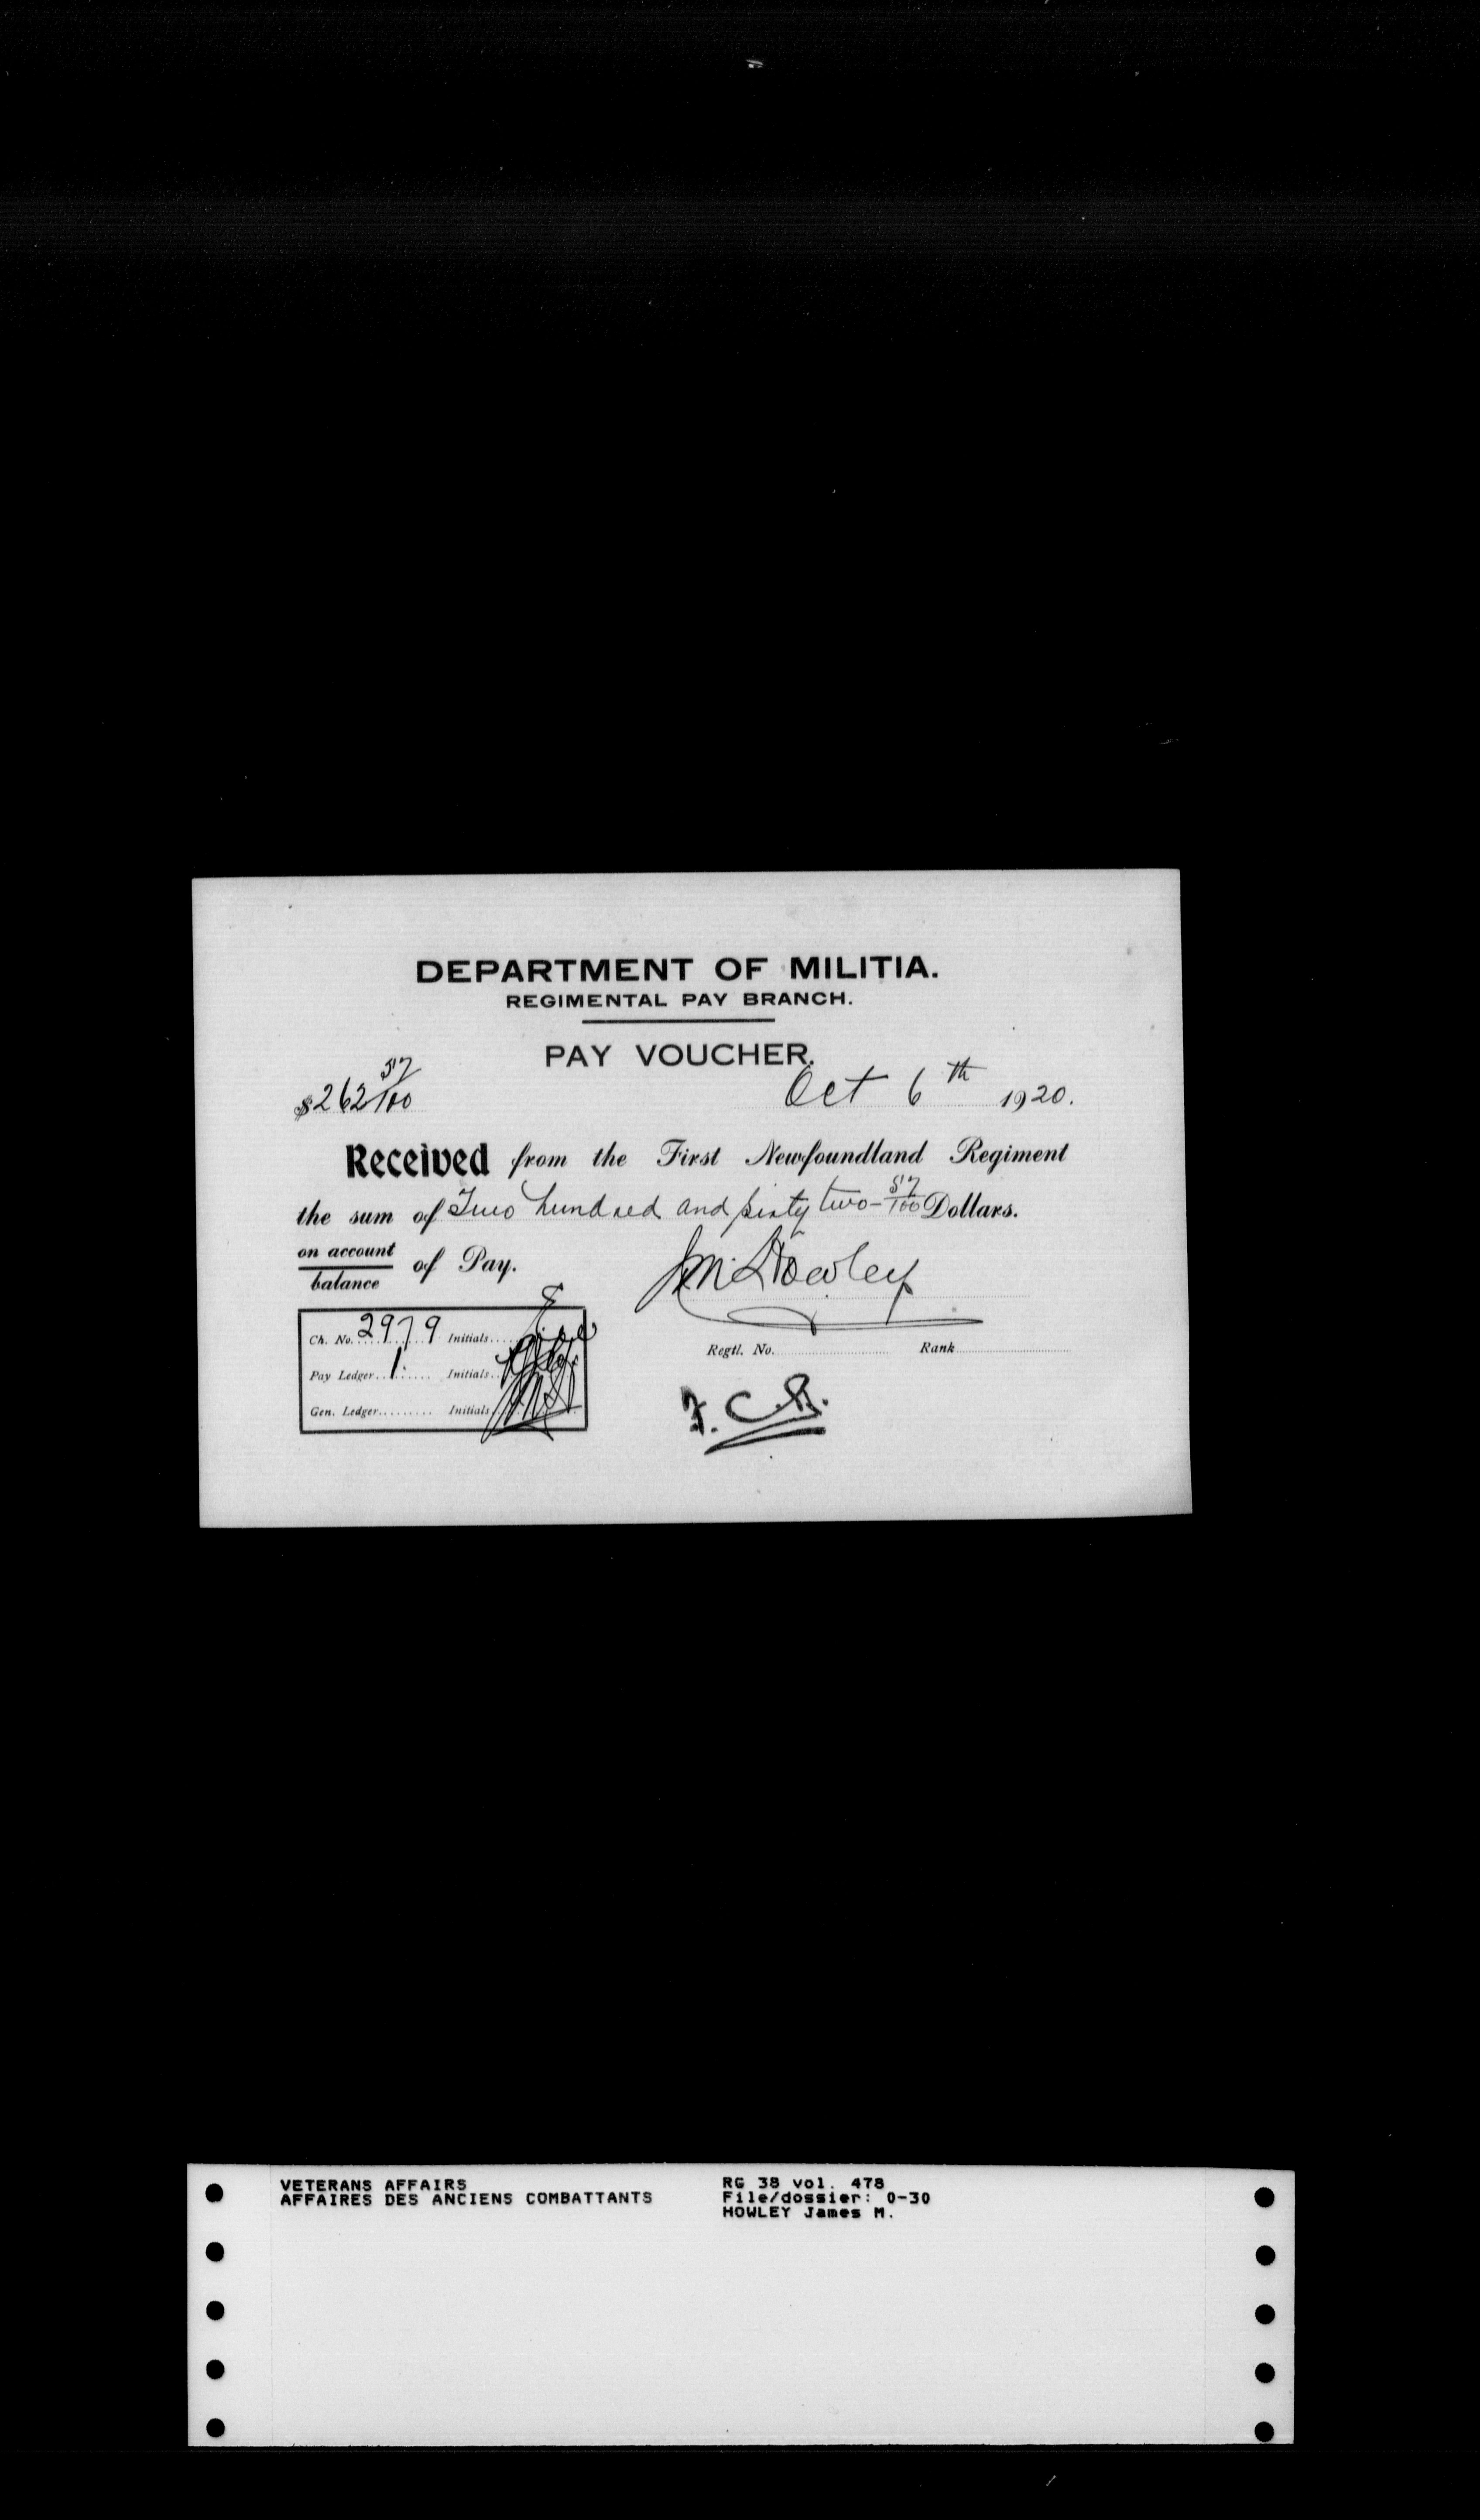 DEPARTMENT OF MILITIA.
REGIMENTAL PAY BRANCH.
PAY VOUCHER.
$262 57/100
Oct 6th 1920.
Received from the First Newfoundland Regiment
the sum of Two hundred and sixty two - 57/100 Dollars.
on account
balance
of Pay.
J.M. Howley
Ch. No. 2979 Initials
Pay Ledger 1. Initials
Gen. Ledger Initials
Regtl. No. Rank
F.C.R.
VETERANS AFFAIRS
AFFAIRES DES ANCIENS COMBATTANTS
RG 38 vol. 478
File/dossier: 0-30
HOWLEY James M.